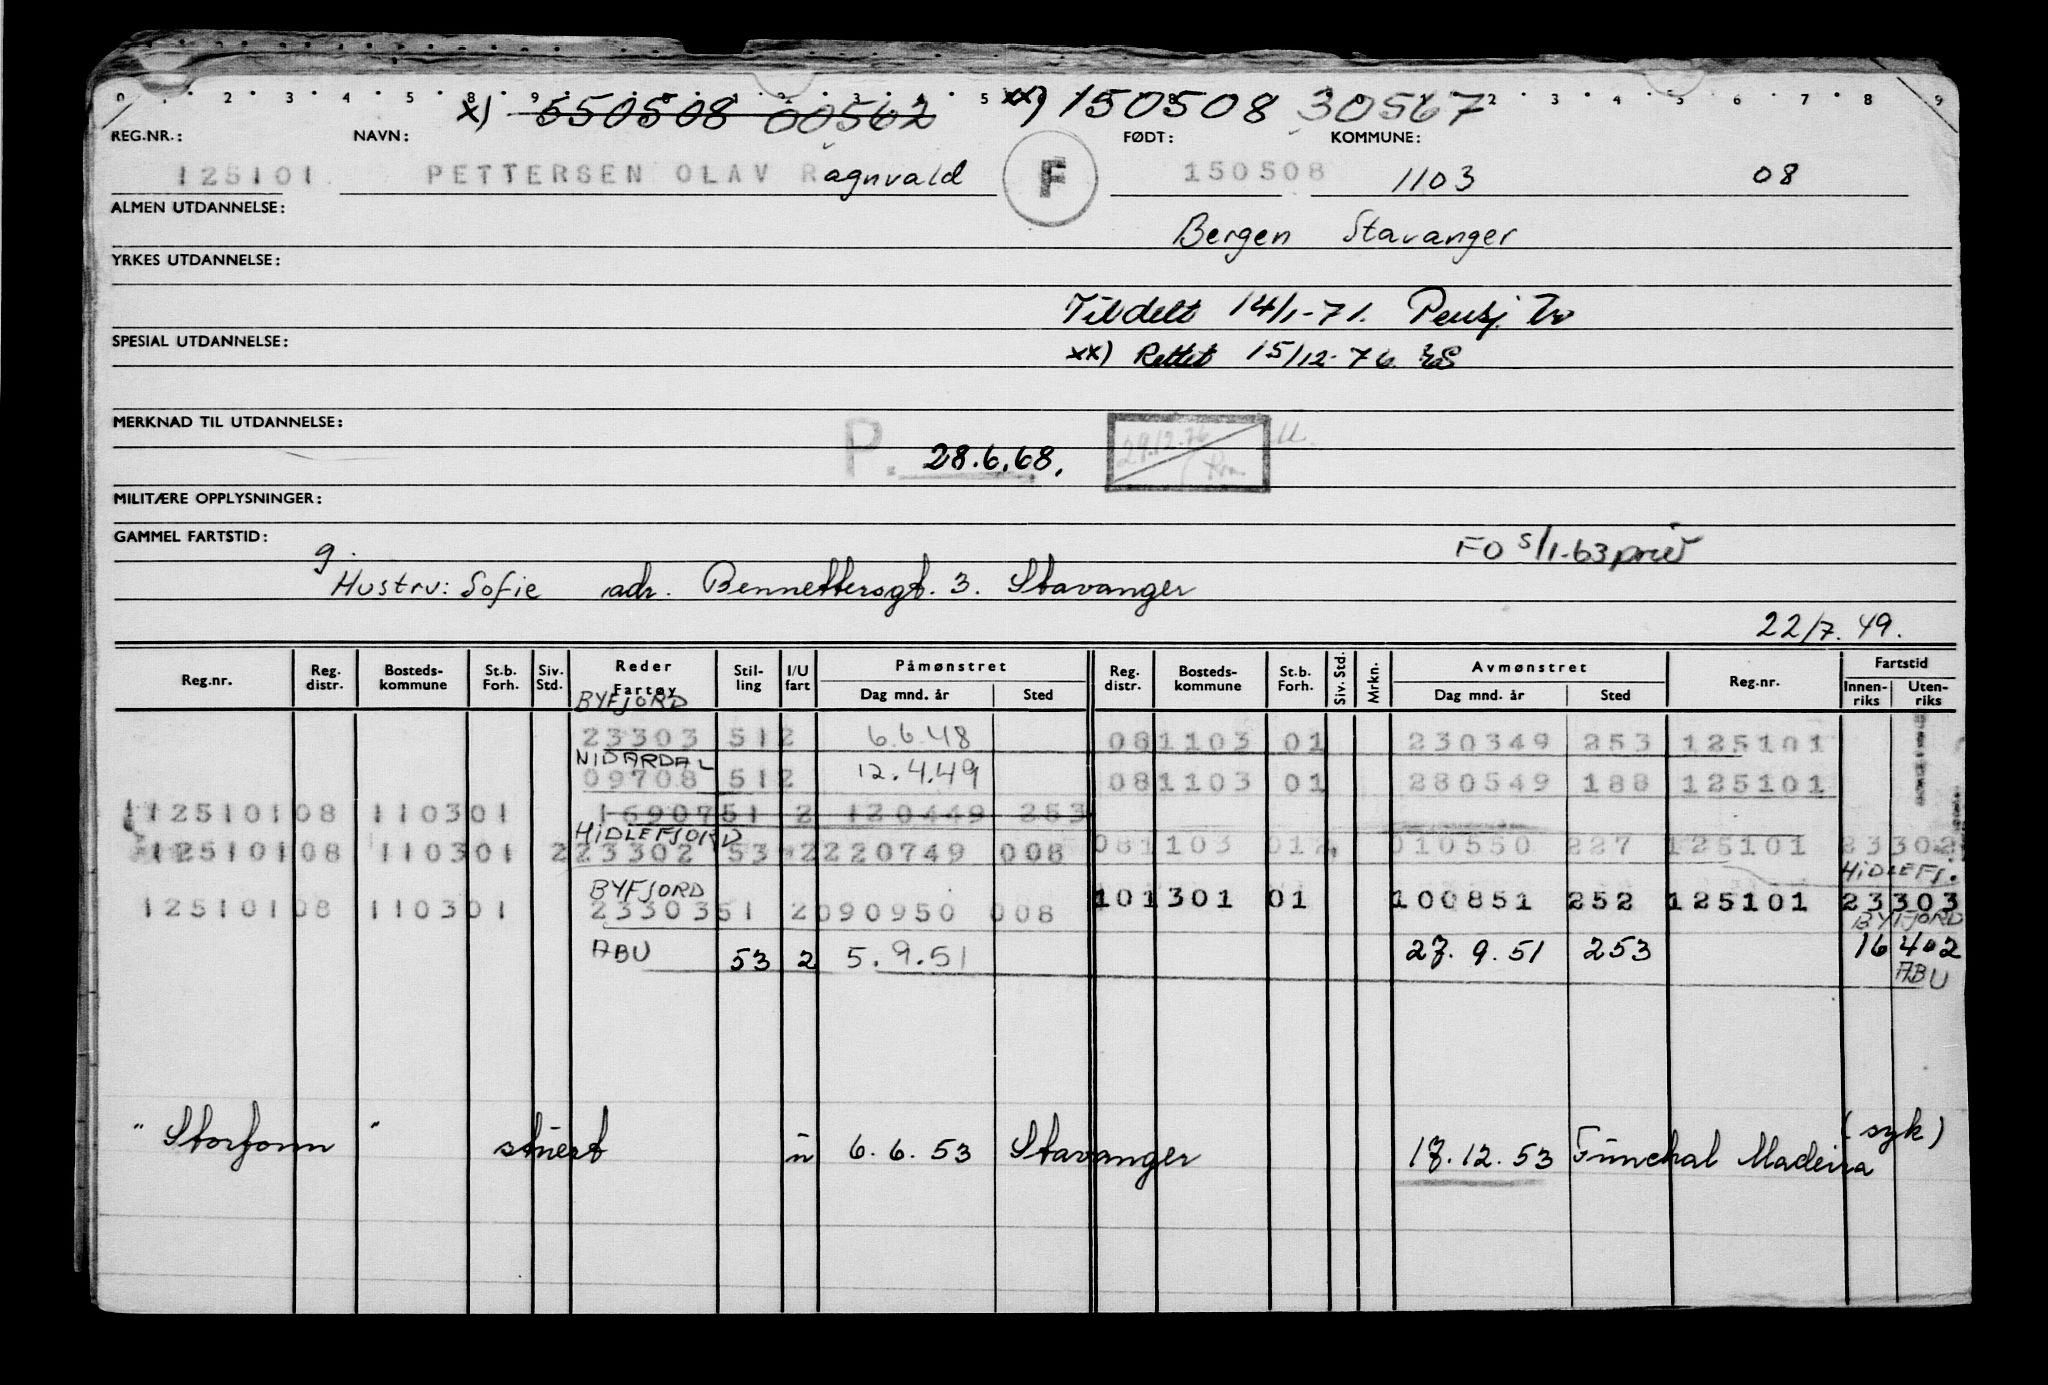 0 1 2 3 4 5 6 7 8 9 5 2 3 4 5 6 7 8 9
x) 550508 00562 xx) 150508 30567
REG.NR.: NAVN: FØDT: KOMMUNE:
125101 PETTERSEN OLAV Ragnvald F 150508 1103 08
ALMEN UTDANNELSE: Bergen Stavanger
YRKES UTDANNELSE:
Tildelt 14/1-71. Pensj. Tr
SPESIAL UTDANNELSE: xx) Rettet 15/12-76 ES
MERKNAD TIL UTDANNELSE: P. 28.6.68. 29.12.76
MILITÆRE OPPLYSNINGER:
GAMMEL FARTSTID: FO 5/1-63
g.
Hustru: Sofie adr. Bennettersgt. 3. Stavanger
22/7. 49.
Reg.nr. Reg. distr. Bosteds- kommune St.b. Forh. Siv. Std. Reder Fartøy Stil- ling I/U fart Påmønstret Dag mnd. år Sted Reg. distr. Bosteds- kommune St.b. Forh. Siv. Std. Mrkn. Avmønstret Dag mnd. år Sted Reg.nr. Fartstid Innen- riks Uten- riks
BYFJORD
23303 512 6.6.48 081103 01 230349 253 125101
NIDARDAL
09708 512 12.4.49 081103 01 280549 188 125101
125101 08 1103 01 1690751 2 120449 253
HIDLEFJORD
125101 08 1103 01 2 23302 53 2 220749 008 081103 012 010550 227 125101 23302
HIDLEFJ.
BYFJORD
125101 08 1103 01 23303 51 2 090950 008 101301 01 100851 252 125101 23303
BYFJORD
ABU 53 2 5.9.51 27.9.51 253 16402
ABU
"Storfonn" stuert u 6.6.53 Stavanger 17.12.53 Funchal Madeira (syk)